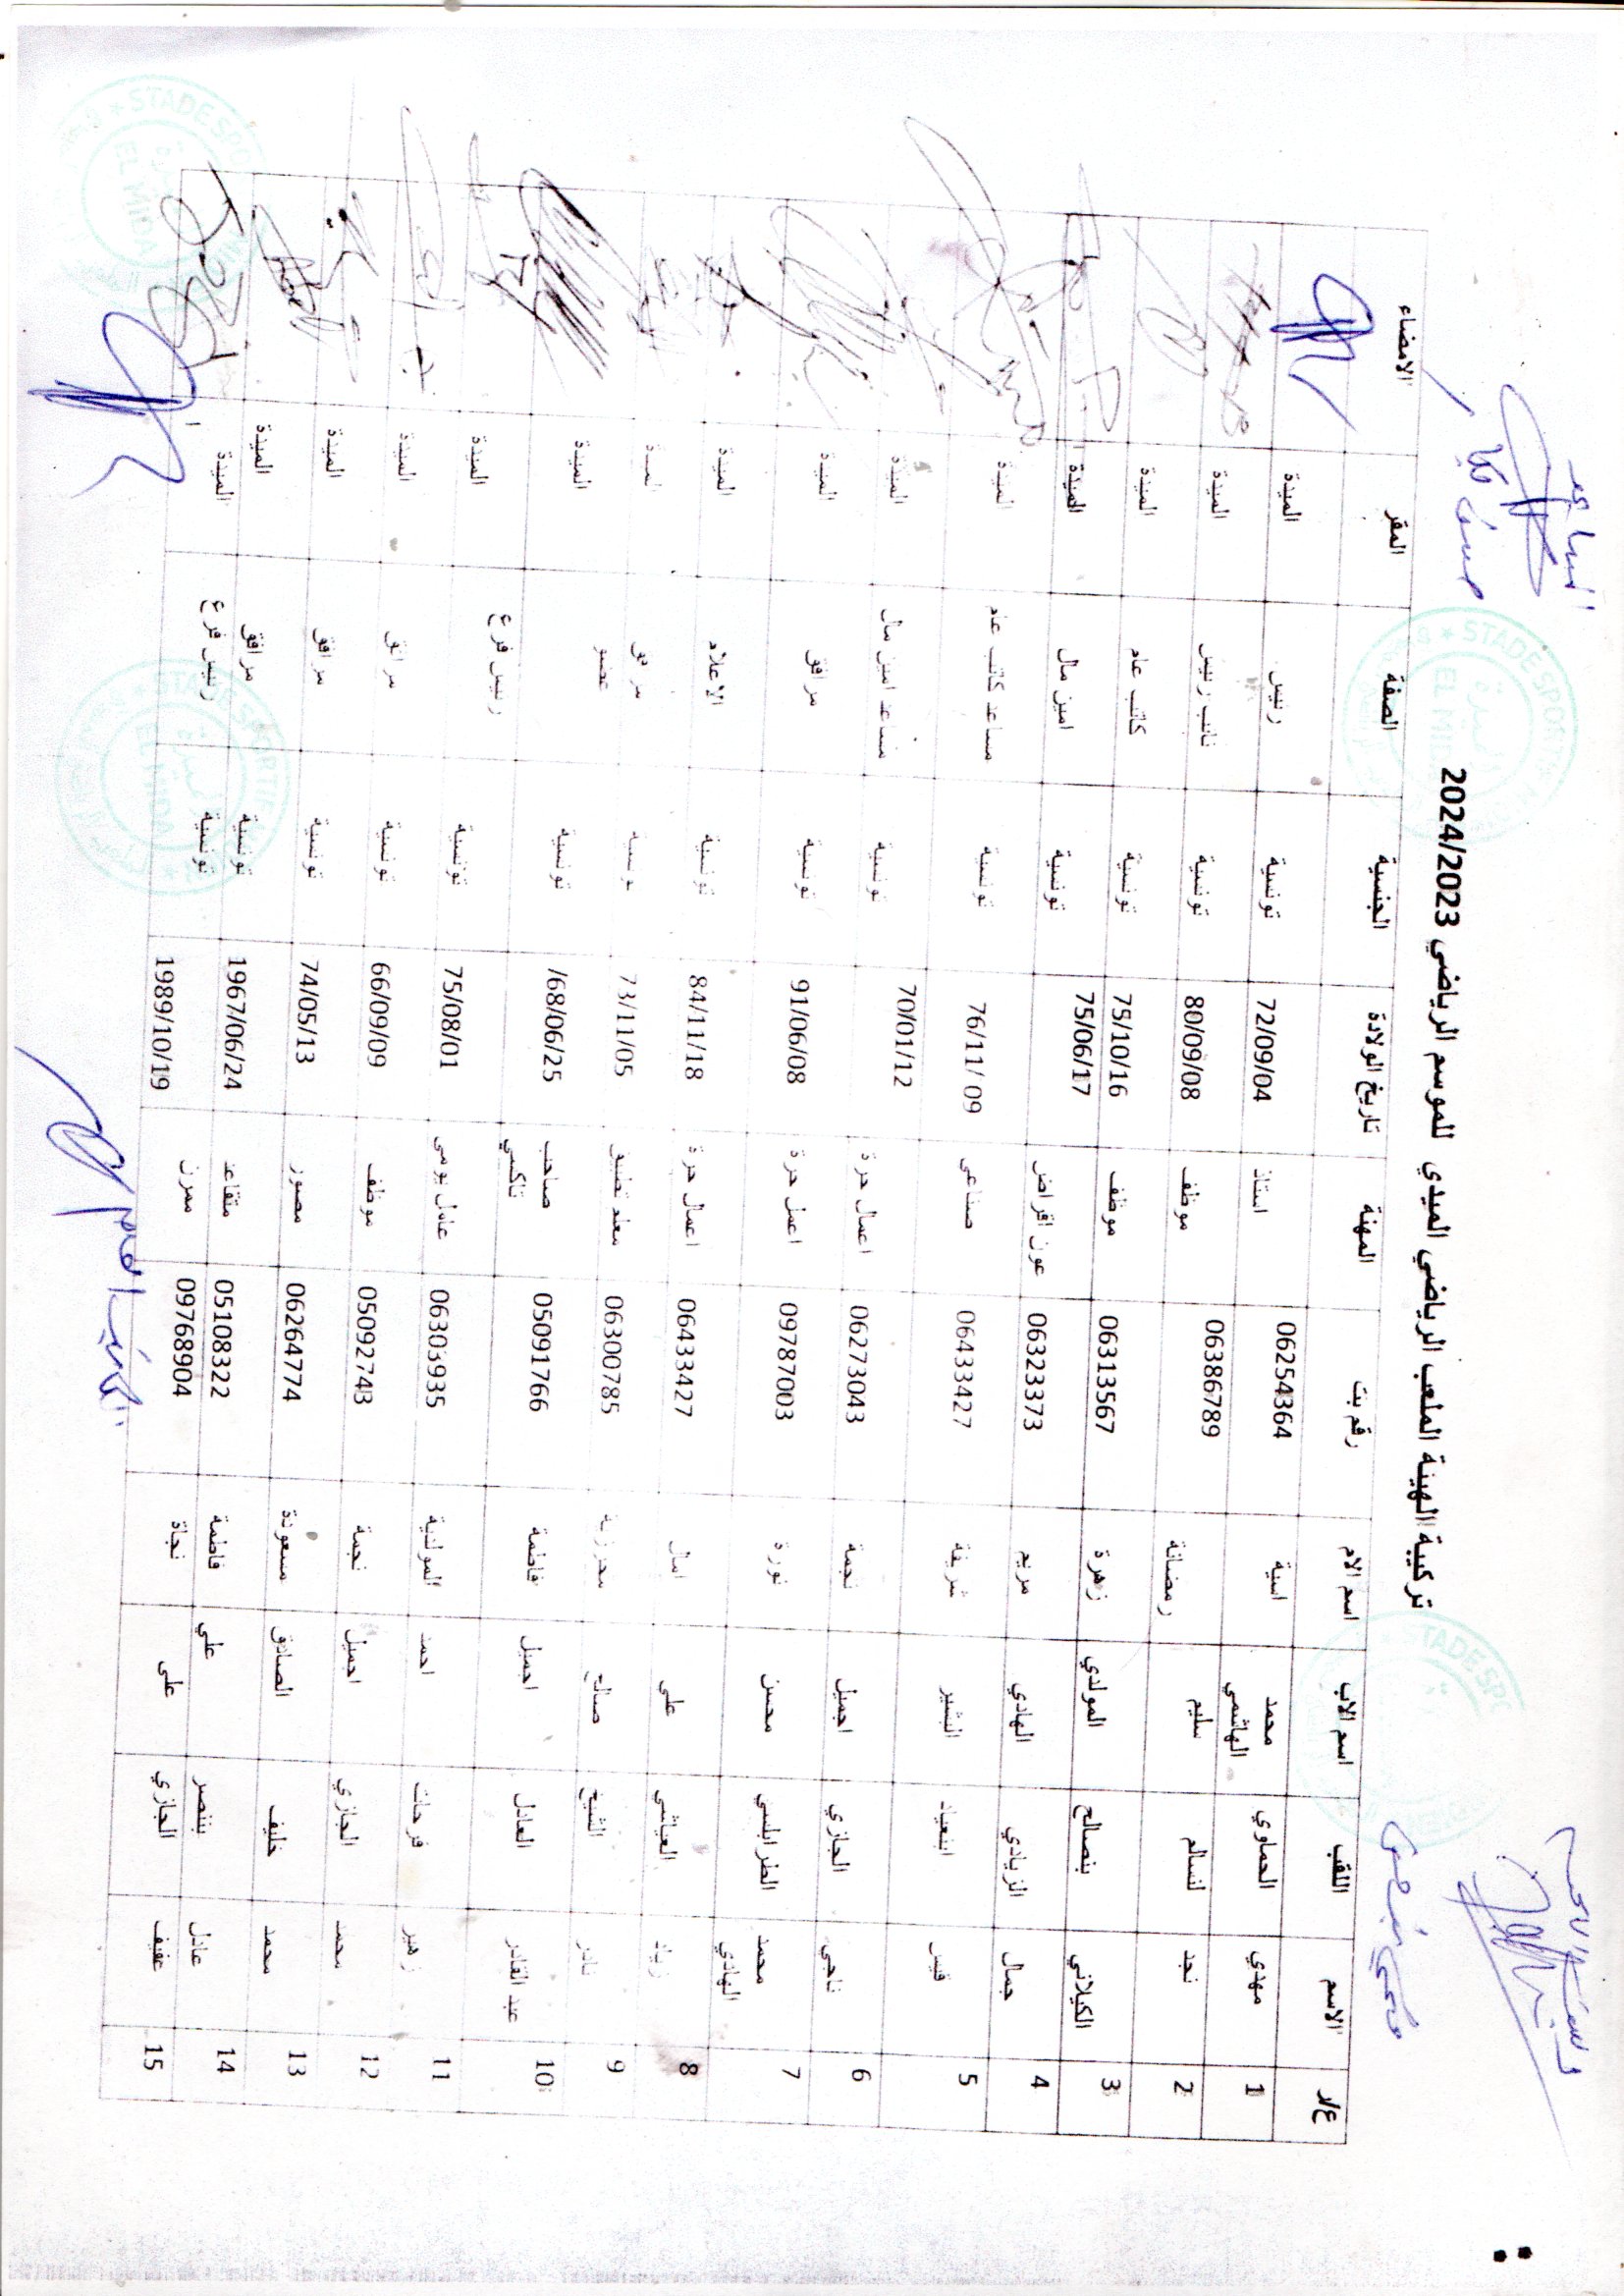 تركيبة الهيئة الملعب الرياضي الميدي للموسم الرياضي 2024/2023
ع/ر الاسم اللقب اسم الاب اسم الام رقم بت المهنة تاريخ الولادة الجنسية الصفة المقر الامضاء
1 مهدي الحماوي محمد الهاشمي اسية 06254364 استاذ 72/09/04 تونسية رئيس الميدة
2 نجد لنسالم سليم رمضانة 06386789 موظف 80/09/08 تونسية نائب رئيس الميدة
3 الكيلاني بنصالح المولدي زهرة 06313567 موظف 75/10/16 تونسية كاتب عام الميدة
4 جمال الزيادي الهادي مريم 06323373 عون اقراض 75/06/17 تونسية امين مال الميدة
5 قيس البشير شريفة 06433427 صناعي 76/11/09 تونسية مساعد كاتب عام الميدة
6 ناجي الجازي اجميل نجمة 06273043 اعمال حرة 70/01/12 تونسية مساعد امين مال الميدة
7 محمد الهادي الطرابلسي محسن نورة 09787003 اعمل حرة 91/06/08 تونسية مرافق الميدة
8 زياد العياشي علي امال 06433427 اعمال حرة 84/11/18 تونسية الاعلام الميدة
9 نادر الشيخ صالح محرزية 06300785 73/11/05 تونسية عضو الميدة
10 عبد القادر العادل اجميل فاطمة 05091766 صاحب تاكسي 68/06/25/ تونسية الميدة
11 زهير فرحات احمد المولدية 06303935 عامل يومي 75/08/01 تونسية رئيس فرع الميدة
12 محمد الجازي اجميل نجمة 05092743 موظف 66/09/09 تونسية مرافق الميدة
13 محمد خليف الصادق مسعودة 06264774 مصور 74/05/13 تونسية مرافق الميدة
14 عادل بننصر علي فاطمة 05108322 متقاعد 1967/06/24 تونسية مرافق الميدة
15 عفيف الجازي علي نجاة 09768904 ممرن 1989/10/19 تونسية رئيس فرع الميدة
STADE SPORTIF
EL MIDA